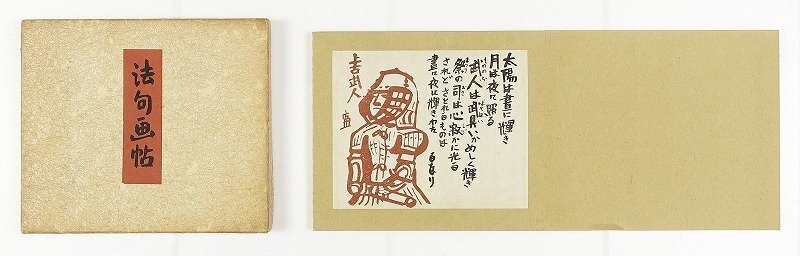 法句画帖
太陽は晝に輝き
月は夜に照る
武人は武具いかめしく輝き
祭の司は心寂かに光る
されどさとれるものは
晝に夜に輝きわたる
なり
古武人